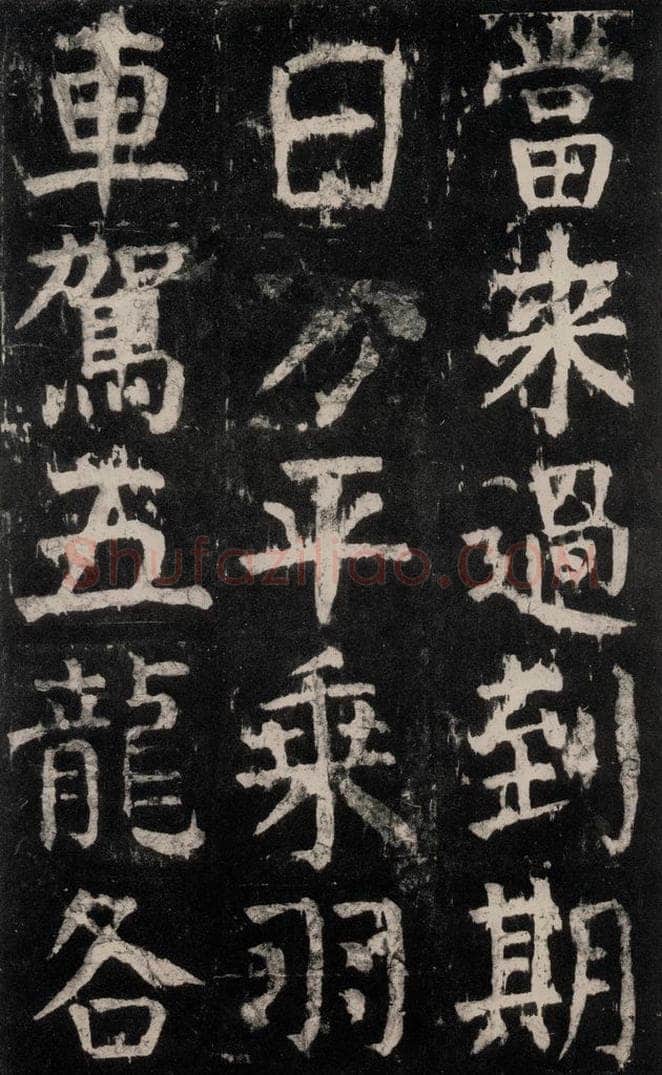 當来過到期
日方平乘羽
車駕五龍各
Shufaziliao.COM